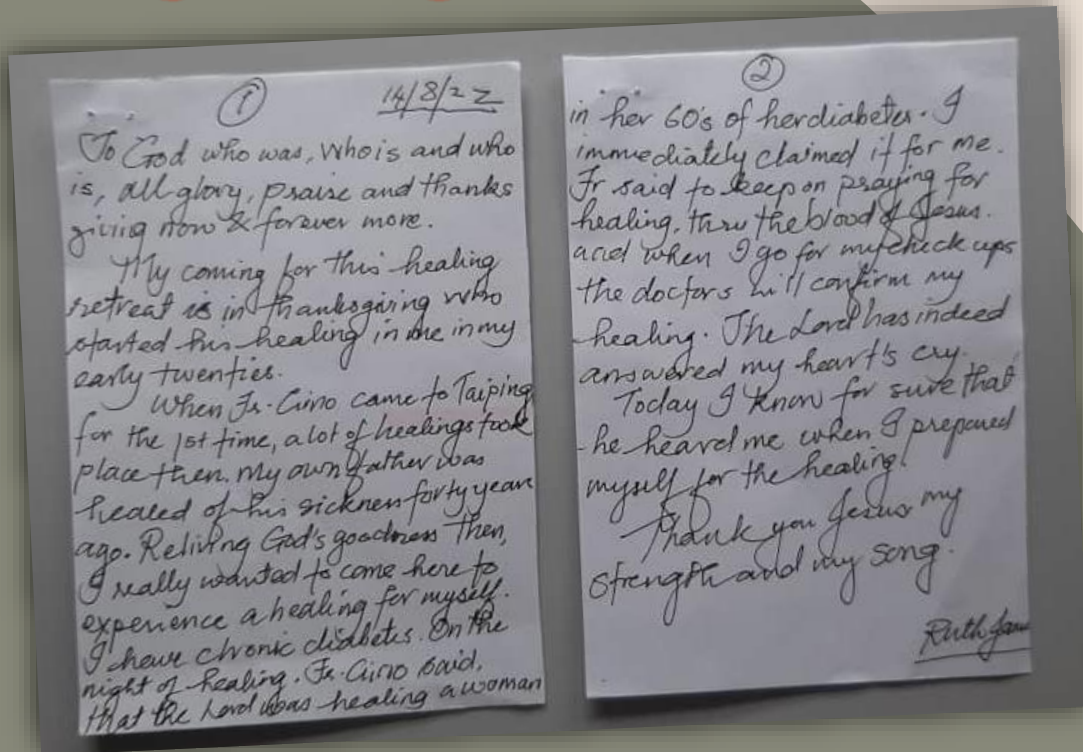 1
14/8/22
To God who was, who is and who
is, all glory, praise and thanks
giving now & forever more.
My coming for this healing
retreat is in thanksgiving who
started his healing in me in my
early twenties.
When Fr. Cirio came to Taiping
for the 1st time, a lot of healings took
place then. My own father was
healed of his sickness forty years
ago. Reliving God's goodness then,
I really wanted to come here to
experience a healing for myself.
I have chronic diabetes. On the
night of healing. Fr. Cirio said,
that the Lord was healing a woman
2
in her 60's of her diabetes. I
immediately claimed it for me.
Fr said to keep on praying for
healing, thru the blood of Jesus.
and when I go for my check ups
the doctors will confirm my
healing. The Lord has indeed
answered my heart's cry.
Today I know for sure that
he heard me when I prepared
myself for the healing!
Thank you Jesus my
strength and my song.
Ruth